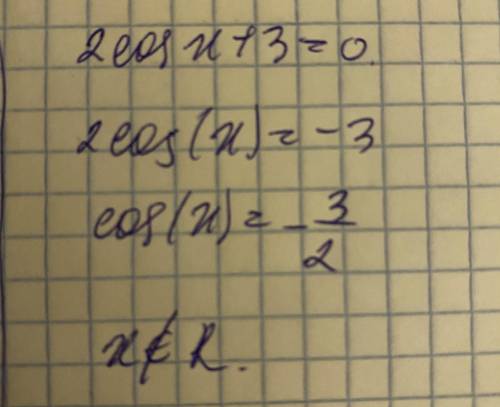 2cos x+3=0.
2cos(x)=-3
cos(x)=-3/2
x∉R.